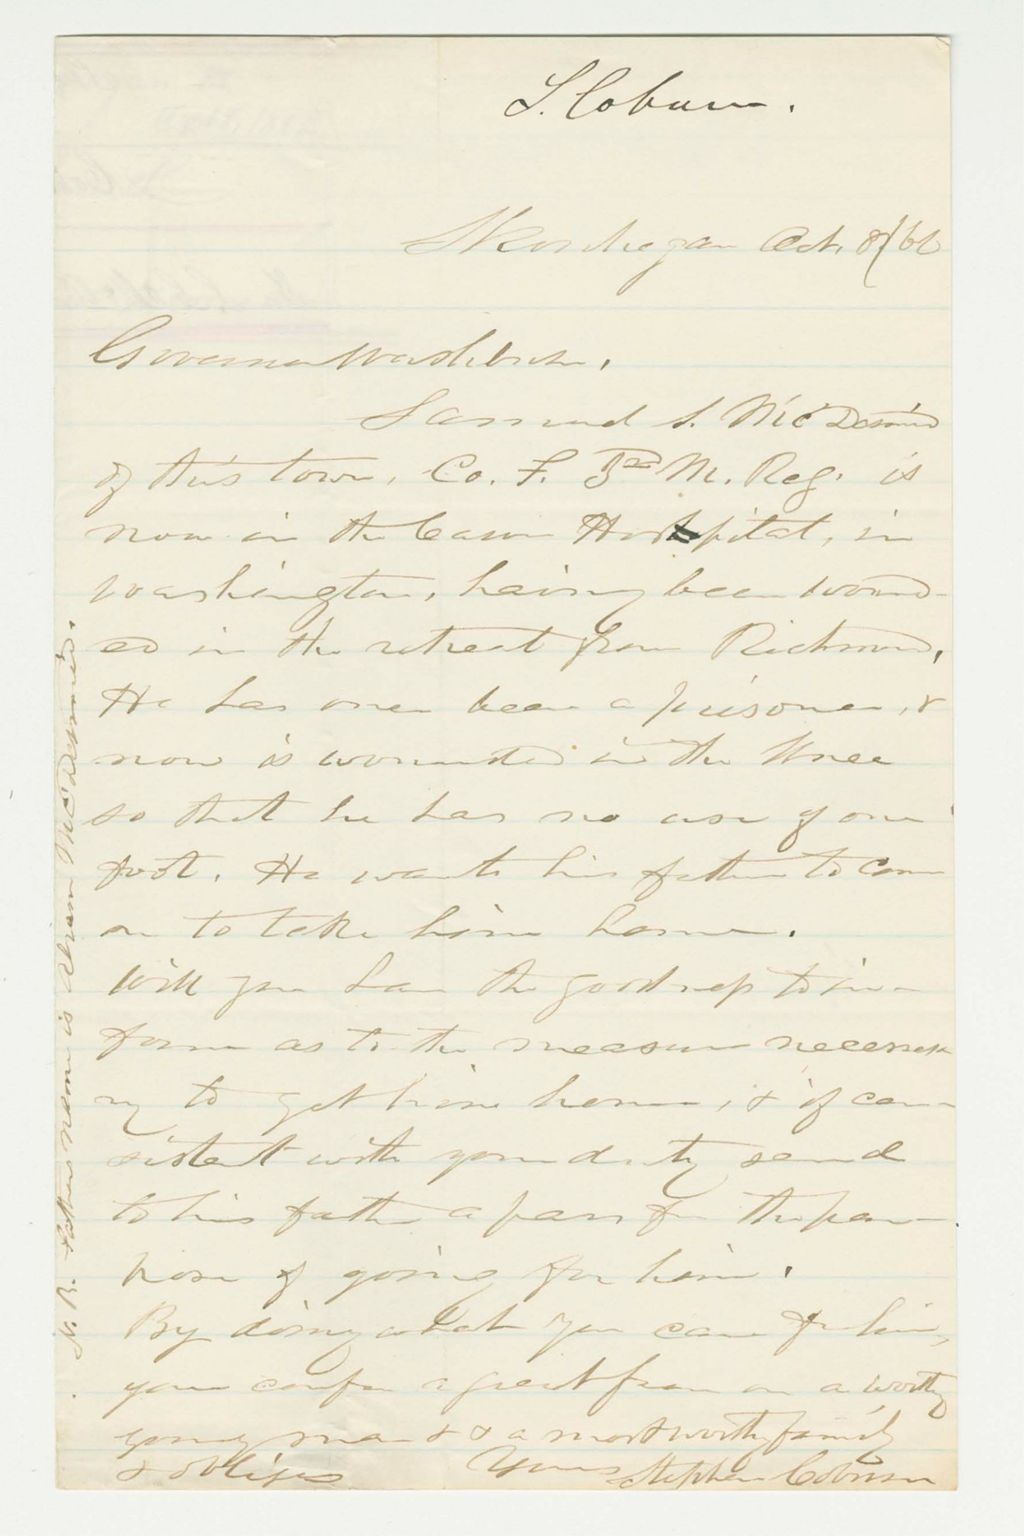 S. Coburn.
Skowhegan Oct. 8/62
Governor Washburn,
Samuel S. McDesmd
of this town, Co. F. 3rd M. Reg. is
now in the Carver Hospital, in
Washington, having been wound-
ed in the retreat from Richmond,
He has once been a prisoner, &
now is wounded in the knee
so that he has no use of one
foot. He wants his father to come
on to take him home.
Will you have the goodness to in-
form as to the measures necessa
ry to get him home, & if con-
sistent with your duty send
to his father a pass for the pur-
pose of going for him.
By doing what you can for him,
you confer a great favor on a worthy
young man & a most worthy family
& oblige Yours Stephen Coburn
N. B. Fathers name is Abram McDesmd.